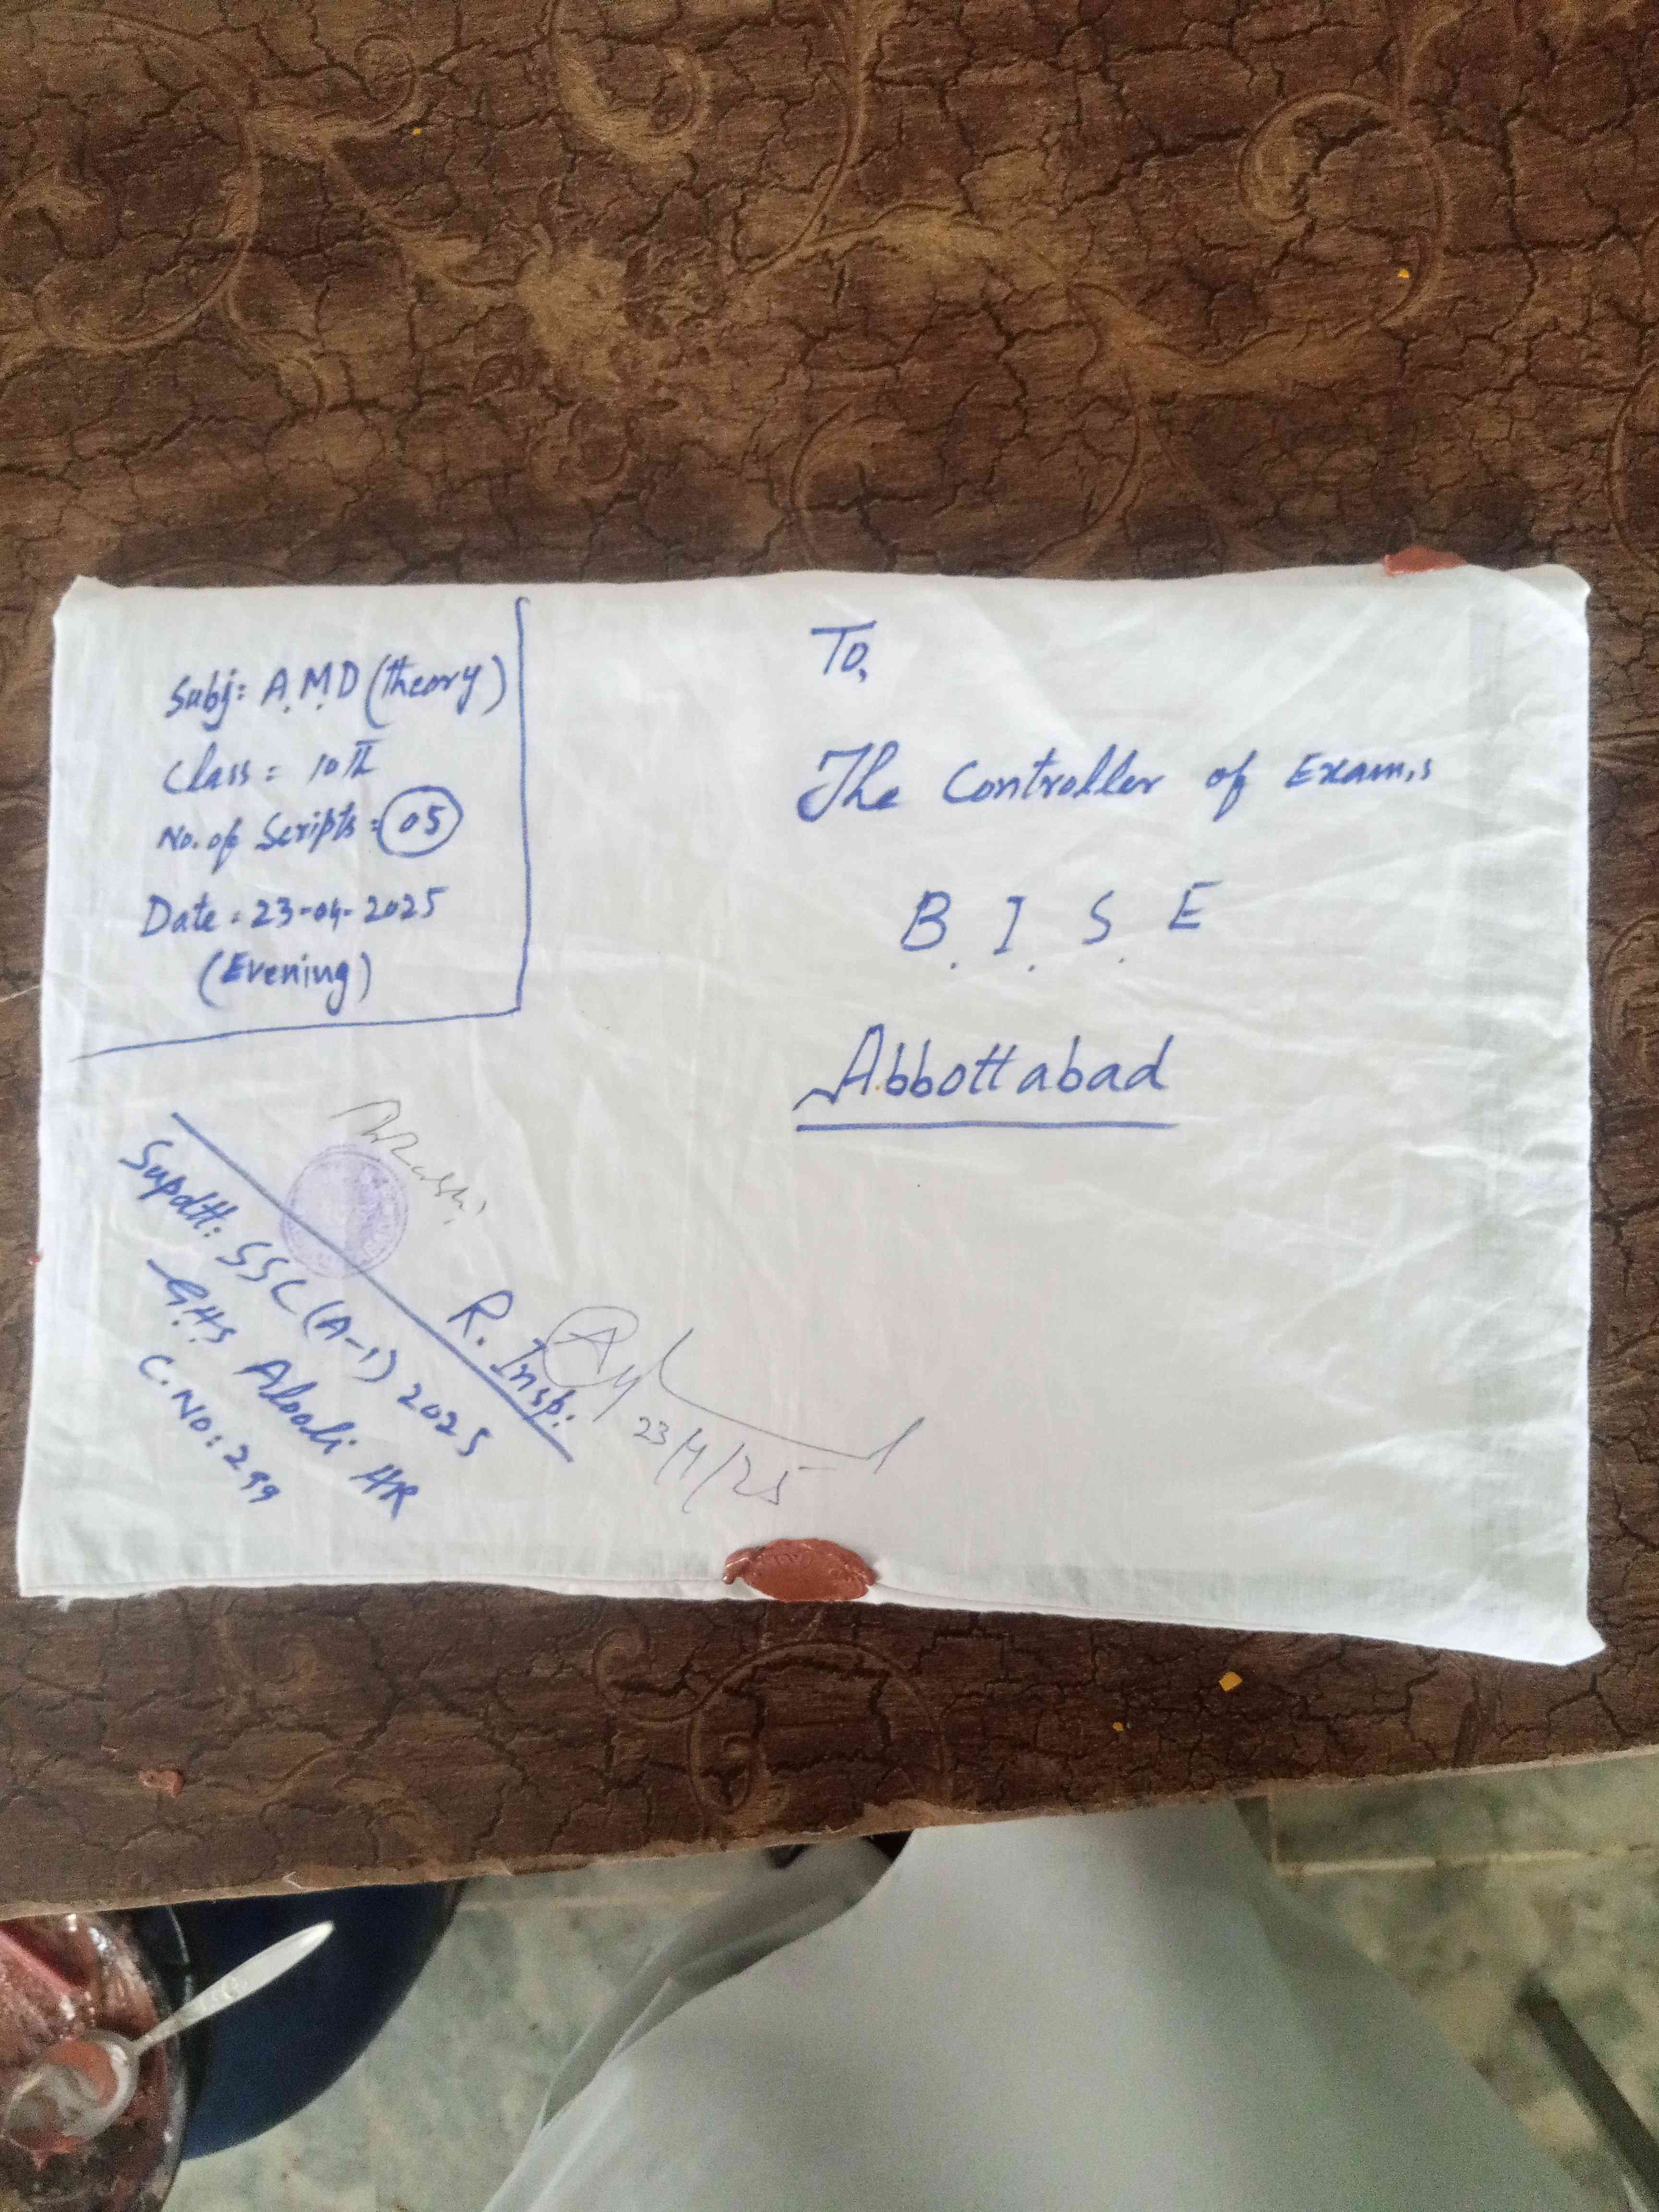 Subj: A.M.D (theory)
Class = 10th
No. of Scripts = 05
Date = 23-04-2025
(Evening)
To,
The Controller of Exam,s
B. I. S. E
Abbottabad
Supdtt: SSC (A-1) 2025
G.H.S Aloali HR
C. No: 299
R. Insp:
23/4/25